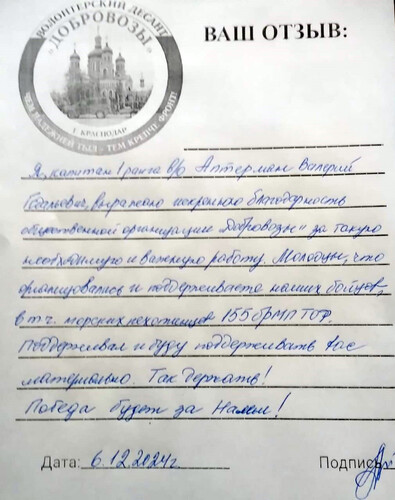 ВОЛОНТЕРСКИЙ ДЕСАНТ
"ДОБРОВОЗЫ"
Г. КРАСНОДАР
ЧЕМ НАДЕЖНЕЙ ТЫЛ - ТЕМ КРЕПЧЕ ФРОНТ!
ВАШ ОТЗЫВ:
Я, капитан 1 ранга в/о Аптерман Валерий
выражаю искреннюю благодарность
общественной организации "Добровозы" за такую
необходимую и важную работу. Молодцы, что
организовались и поддерживаете наших бойцов,
в т.ч. морских пехотинцев 155 брМП ТОФ.
Поддерживал и буду поддерживать Вас
материально. Так держать!
Победа будет за Нами!
Дата: 6.12.2024г.
Подпись